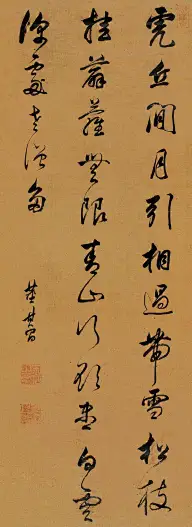 虎丘閒月引相過帶雪松枝
挂薜蘿無限青山行欲盡白雲
深處老僧多
董其昌